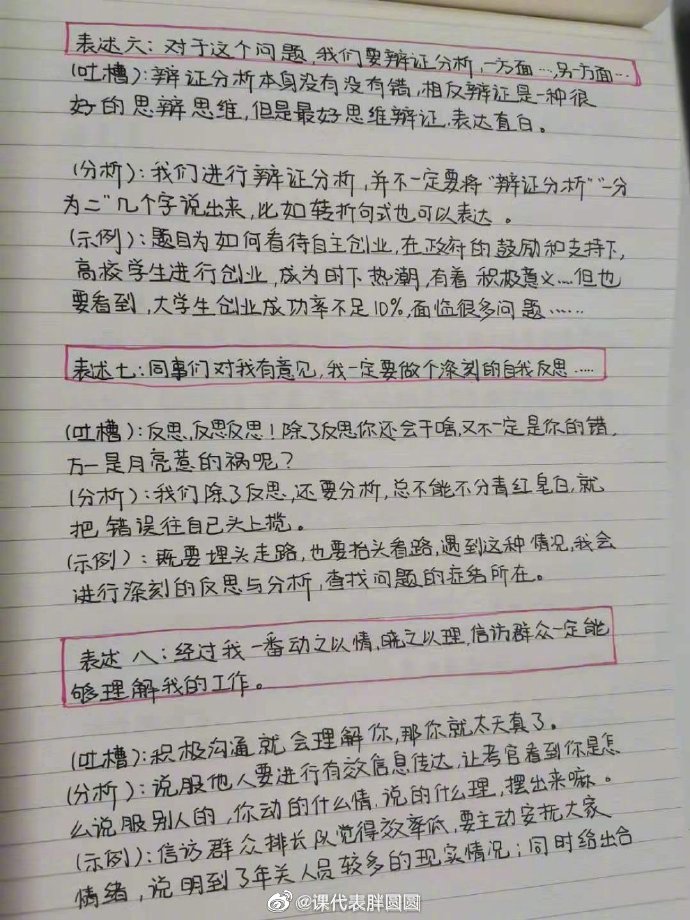 表述六：对于这个问题，我们要辩证分析，一方面…，另一方面…
(吐槽)：辩证分析本身没有没有错，相反辩证是一种很
好的思辨思维，但是最好思维辩证，表达直白。
(分析)：我们进行辩证分析，并不一定要将“辩证分析”“一分
为二”几个字说出来，比如转折句式也可以表达。
(示例)：题目为如何看待自主创业，在政府的鼓励和支持下，
高校学生进行创业，成为时下热潮，有着积极意义……但也
要看到，大学生创业成功率不足10%，面临很多问题……
表述七：同事们对我有意见，我一定要做个深刻的自我反思……
(吐槽)：反思，反思反思！除了反思你还会干啥，又不一定是你的错，
万一是月亮惹的祸呢？
(分析)：我们除了反思，还要分析，总不能不分青红皂白，就
把错误往自己头上揽。
(示例)：既要埋头走路，也要抬头看路，遇到这种情况，我会
进行深刻的反思与分析，查找问题的症结所在。
表述八：经过我一番动之以情，晓之以理，信访群众一定能
够理解我的工作。
(吐槽)：积极沟通就会理解你，那你就太天真了。
(分析)：说服他人要进行有效信息传达，让考官看到你是怎
么说服别人的，你动的什么情，说的什么理，摆出来嘛。
(示例)：信访群众排长队觉得效率低，要主动安抚大家
情绪，说明到了年关人员较多的现实情况；同时给出合
@课代表胖圆圆